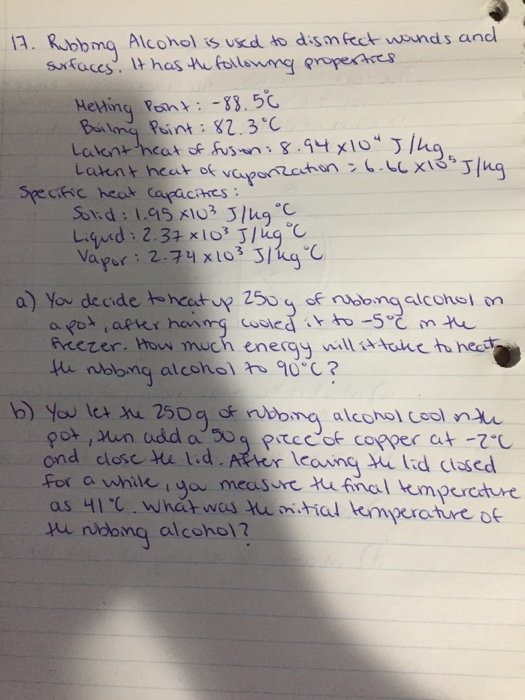 17. Rubbing Alcohol is used to disinfect wounds and
surfaces. It has the following properties
Melting Point: -88.5°C
Boiling Point: 82.3°C
Latent heat of fusion: 8.94 x10⁴ J/kg
Latent heat of vaporization = 6.66 x10⁵ J/kg
Specific heat capacities:
Solid: 1.95 x10³ J/kg°C
Liquid: 2.37 x10³ J/kg°C
Vapor: 2.74 x10³ J/kg°C
a) You decide to heat up 250 g of rubbing alcohol on
a pot, after having cooled it to -5°C in the
freezer. How much energy will it take to heat
the rubbing alcohol to 90°C?
b) You let the 250g of rubbing alcohol cool in the
pot, then add a 50g piece of copper at -2°C
and close the lid. After leaving the lid closed
for a while, you measure the final temperature
as 41°C. What was the initial temperature of
the rubbing alcohol?